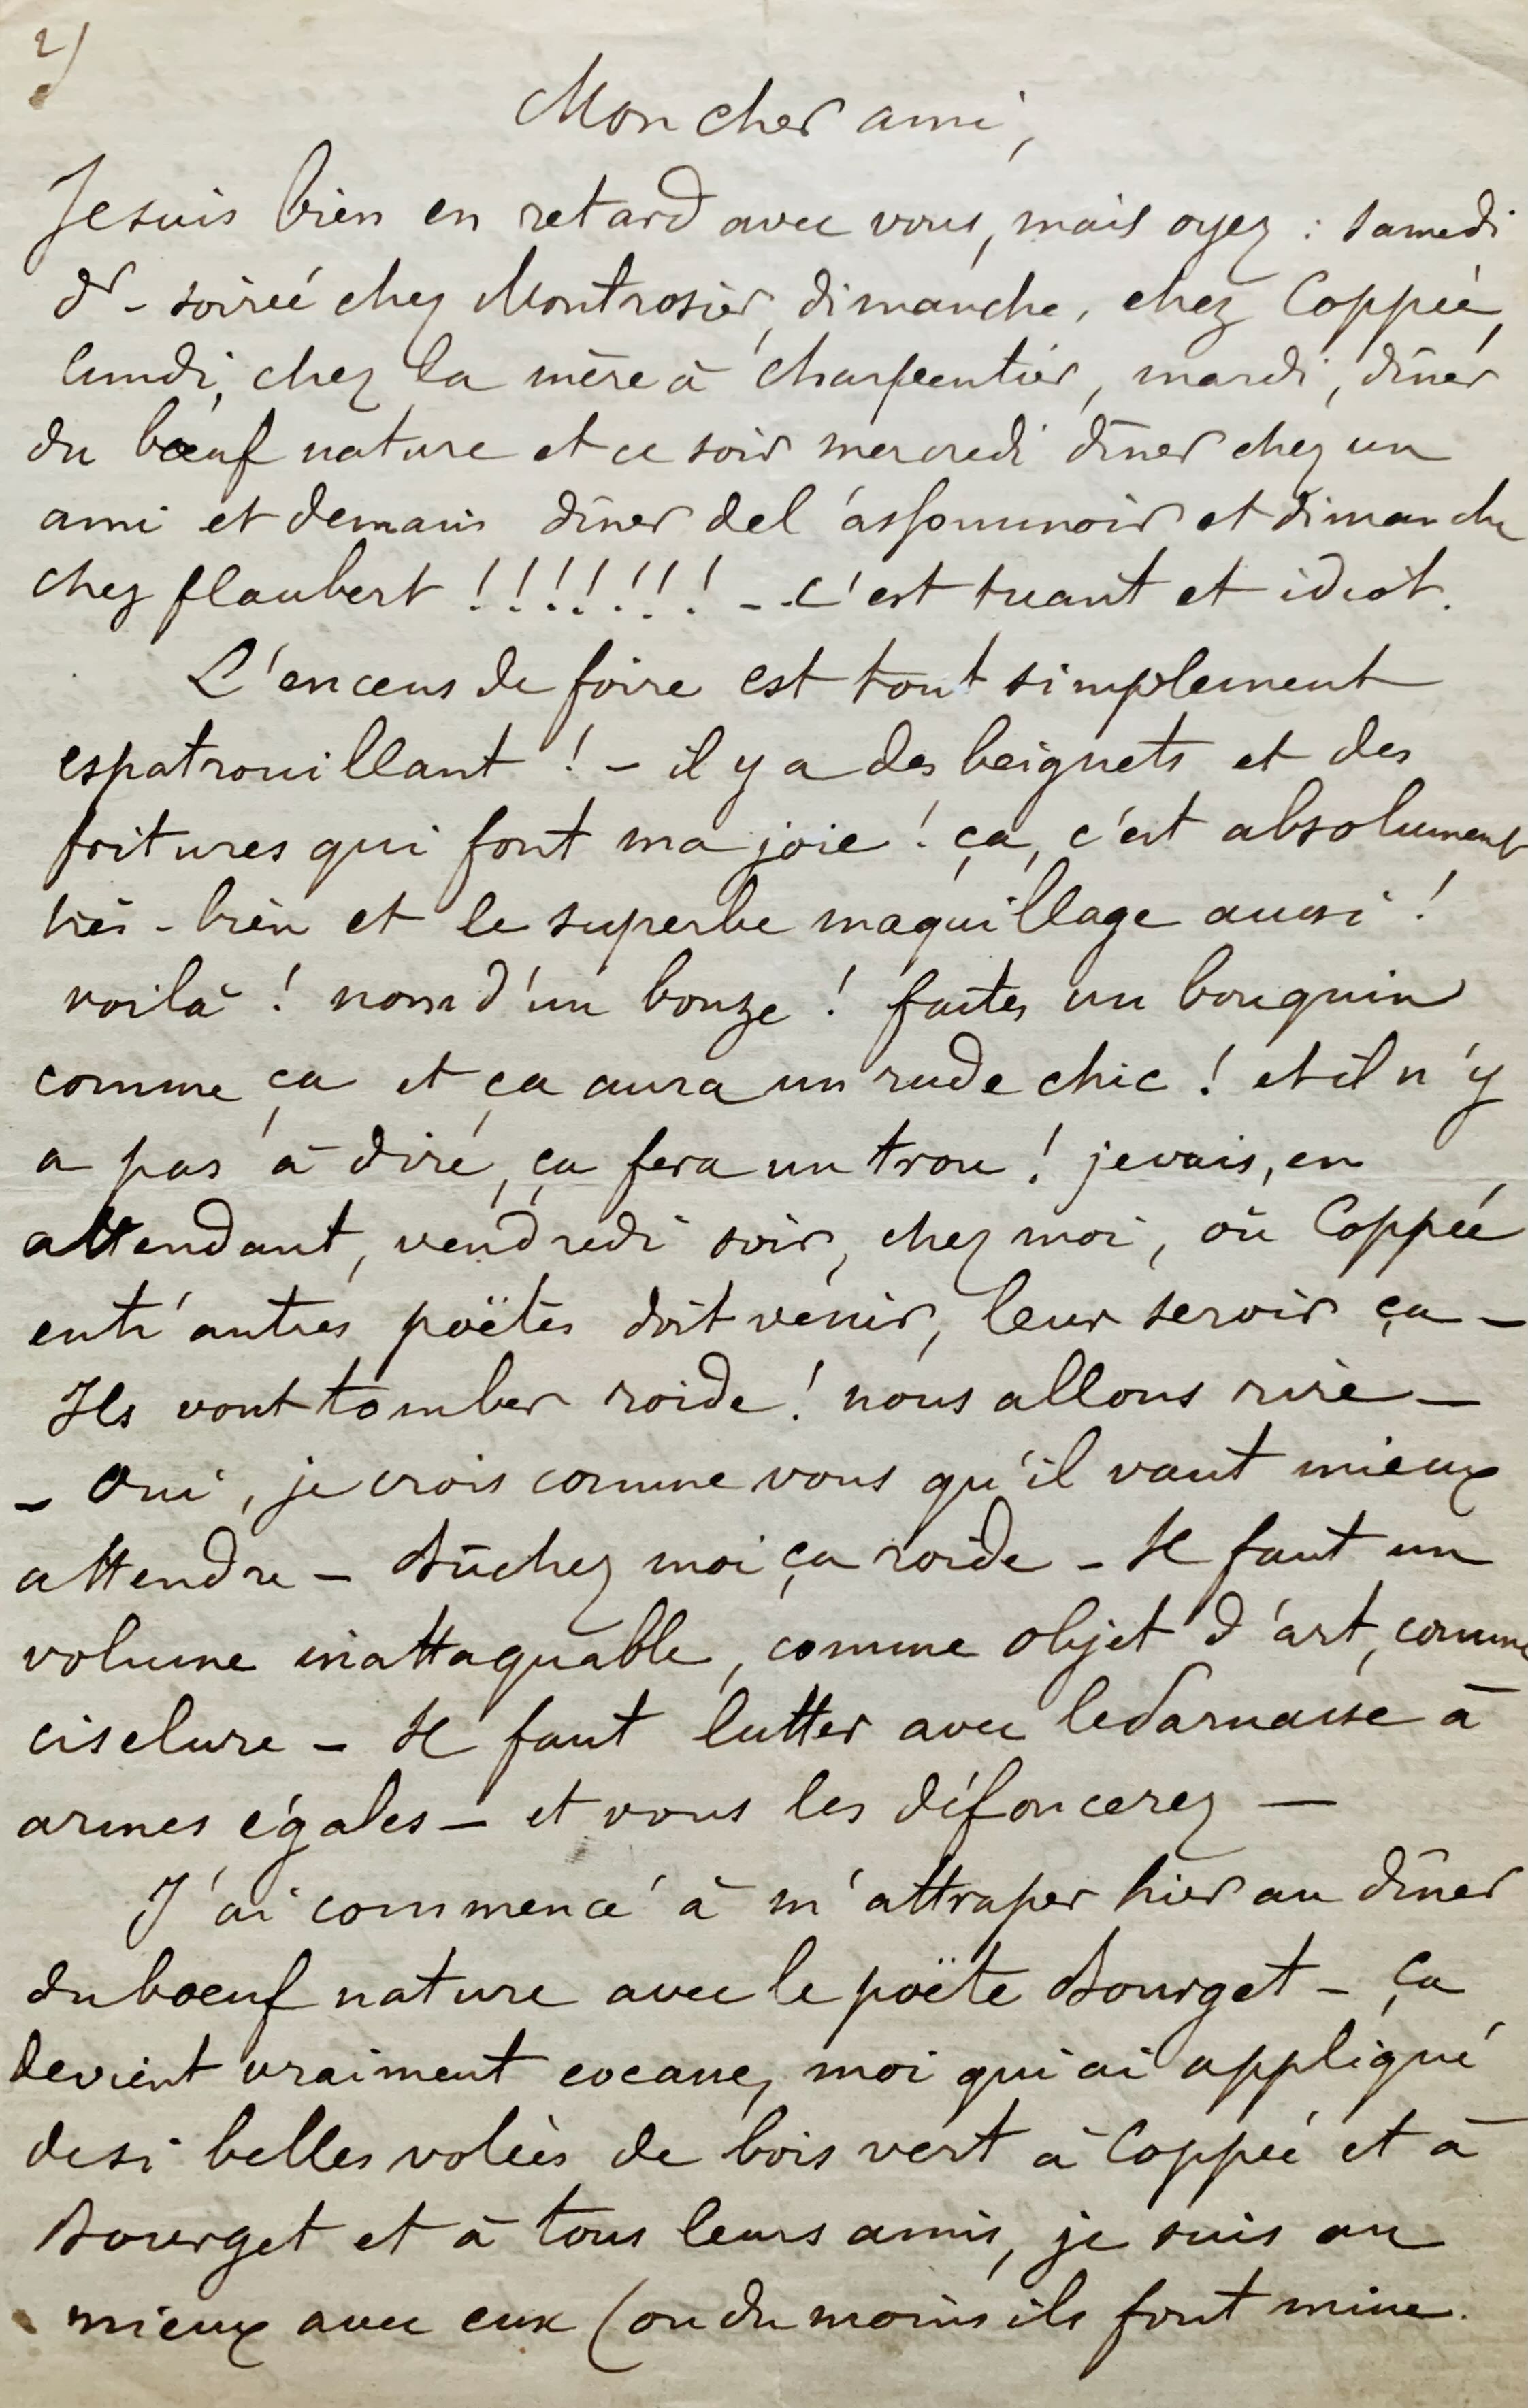 2)
Mon cher ami,
Je suis bien en retard avec vous, mais oyez : samedi
dr - soirée chez Montrosier, dimanche, chez Coppée,
lundi, chez la mère à Charpentier, mardi, dîner
du bœuf nature et ce soir mercredi dîner chez un
ami et demain dîner de l'assommoir et dimanche
chez flaubert !!!!!!! - c'est tuant et idiot.
L'encens de foire est tout simplement
espatrouillant ! - il y a des beignets et des
fritures qui font ma joie ! ça, c'est absolument
très-bien et le superbe maquillage aussi !
voilà ! nom d'un bonze ! faites un bouquin
comme ça et ça aura un rude chic ! et il n'y
a pas à dire, ça fera un trou ! je vais, en
attendant, vendredi soir, chez moi, où Coppée
entr'autres poëtes doit venir, leur servir ça -
Ils vont tomber roide ! nous allons rire -
- Oui, je crois comme vous qu'il vaut mieux
attendre - Bûchez moi ça roide - Il faut un
volume inattaquable, comme objet d'art, comme
ciselure - Il faut lutter avec le Parnasse à
armes égales - et vous les défoncerez -
J'ai commencé à m'attraper hier au dîner
du boeuf nature avec le poëte Bourget - ça
devient vraiment cocasse, moi qui ai appliqué
de si belles volées de bois vert à Coppée et à
Bourget et à tous leurs amis, je suis au
mieux avec eux (ou du moins ils font mine